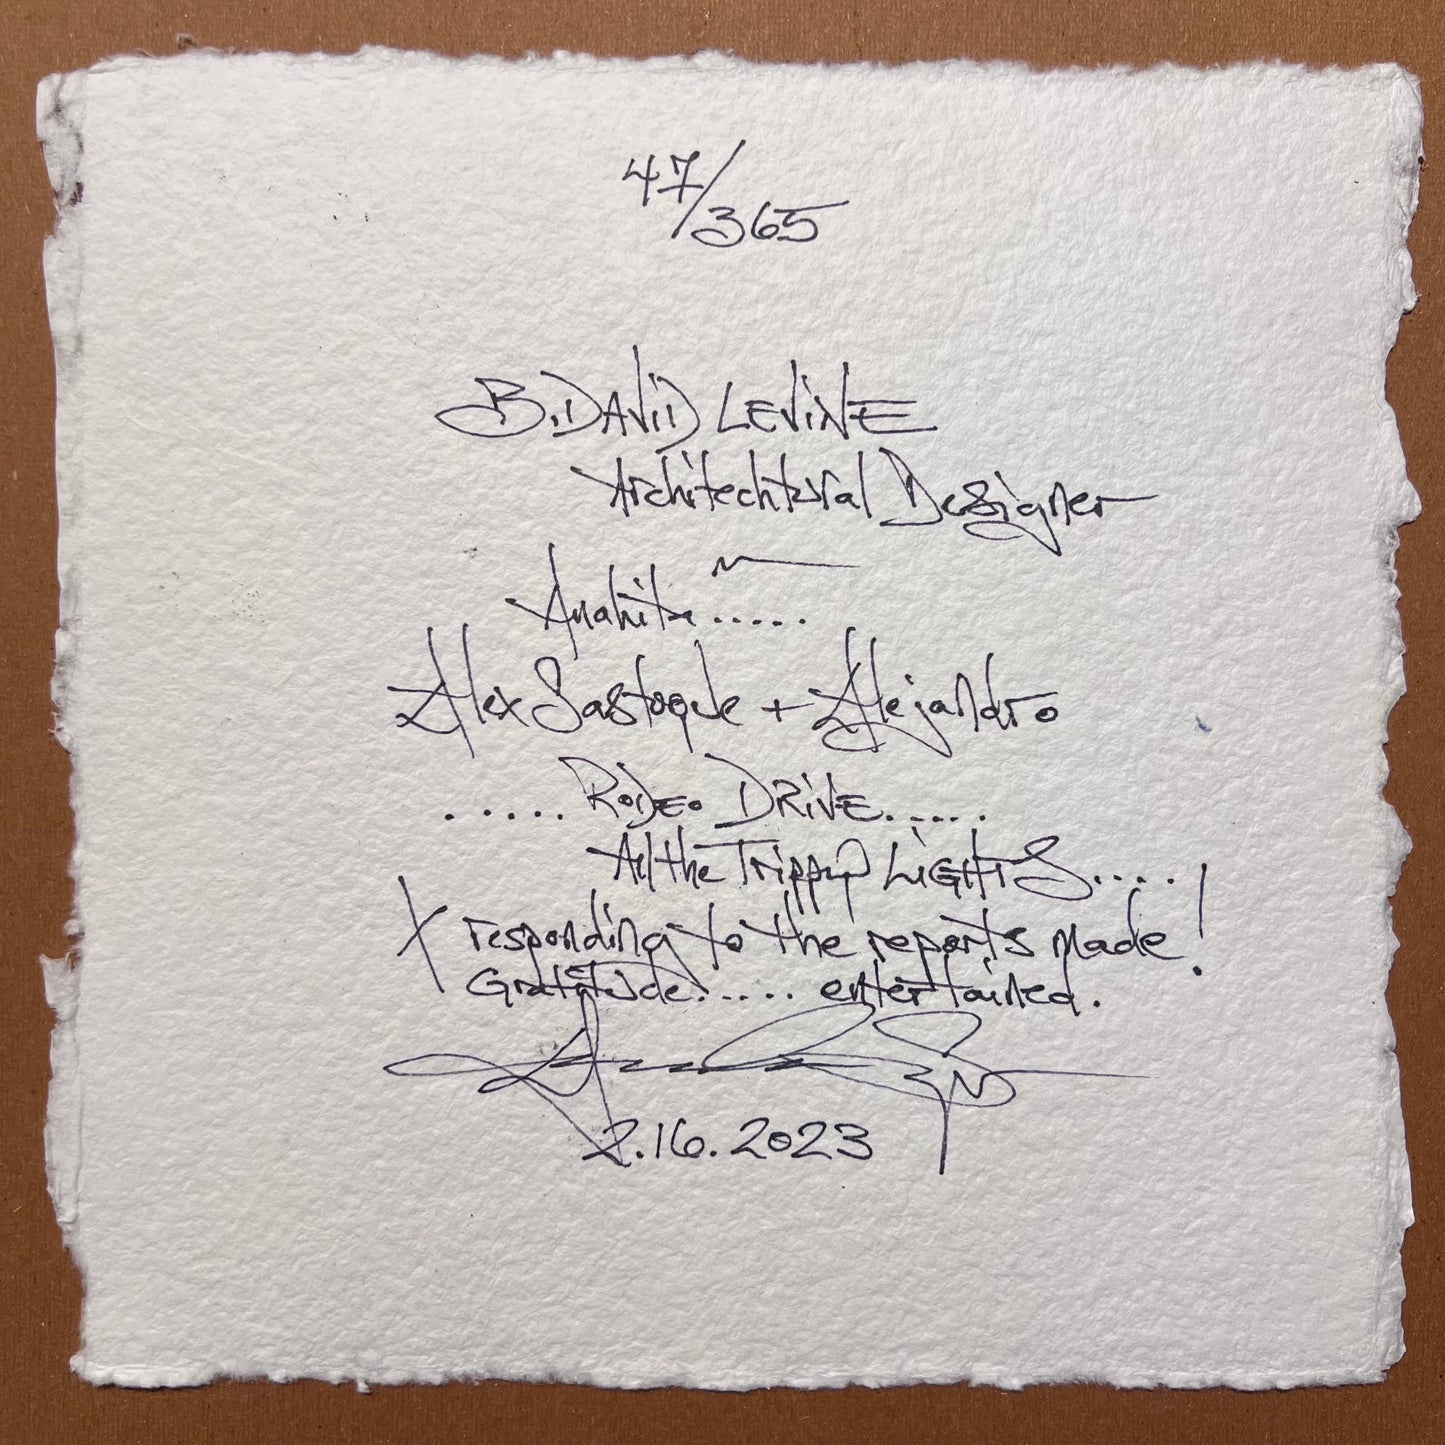 47/365
B. DAVID LEVINE
Architechtural Designer
Anahita.....
Alex Sastoque + Alejandro
.....RODEO DRIVE.....
All the Trippy LIGHTS....
X responding to the reports made!
Gratitude..... entertained.
2.16.2023